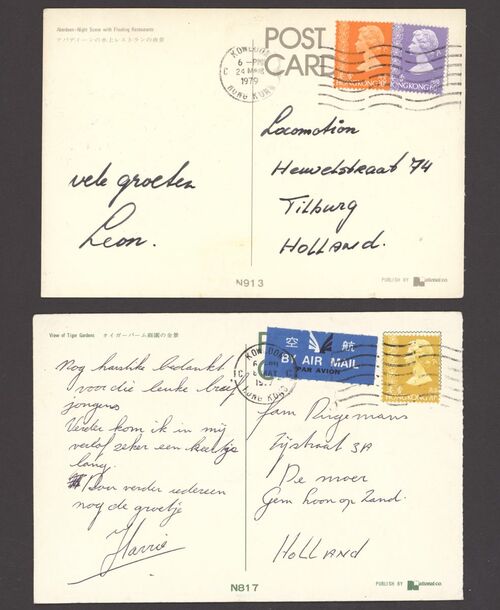 Aberdeen-Night Scene with Floating Restaurants
アバディーンの水上レストランの夜景
POST
CARD
KOWLOON
6 - PM
24 MAR
1979
C
HONG KONG
HONG KONG
HONG KONG
vele groeten
Leon.
Locomotion
Heuvelstraat 74
Tilburg
HOLLAND.
N913
PUBLISH BY National co.
View of Tiger Gardens タイガーバーム庭園の全景
KOWLOON
HONG KONG
空 航
BY AIR MAIL
PAR AVION
HONG KONG
Nog hartelike bedankt
voor die leuke brief
jongens
Verder kom ik in mij
verlof zeker een keertje
lang.
Door verder iedereen
nog de groetje
Harrie
Fam Ringemans
Zijstraat 3A
De moer
Gem Loon op Zand.
HOLLAND
N817
PUBLISH BY National co.